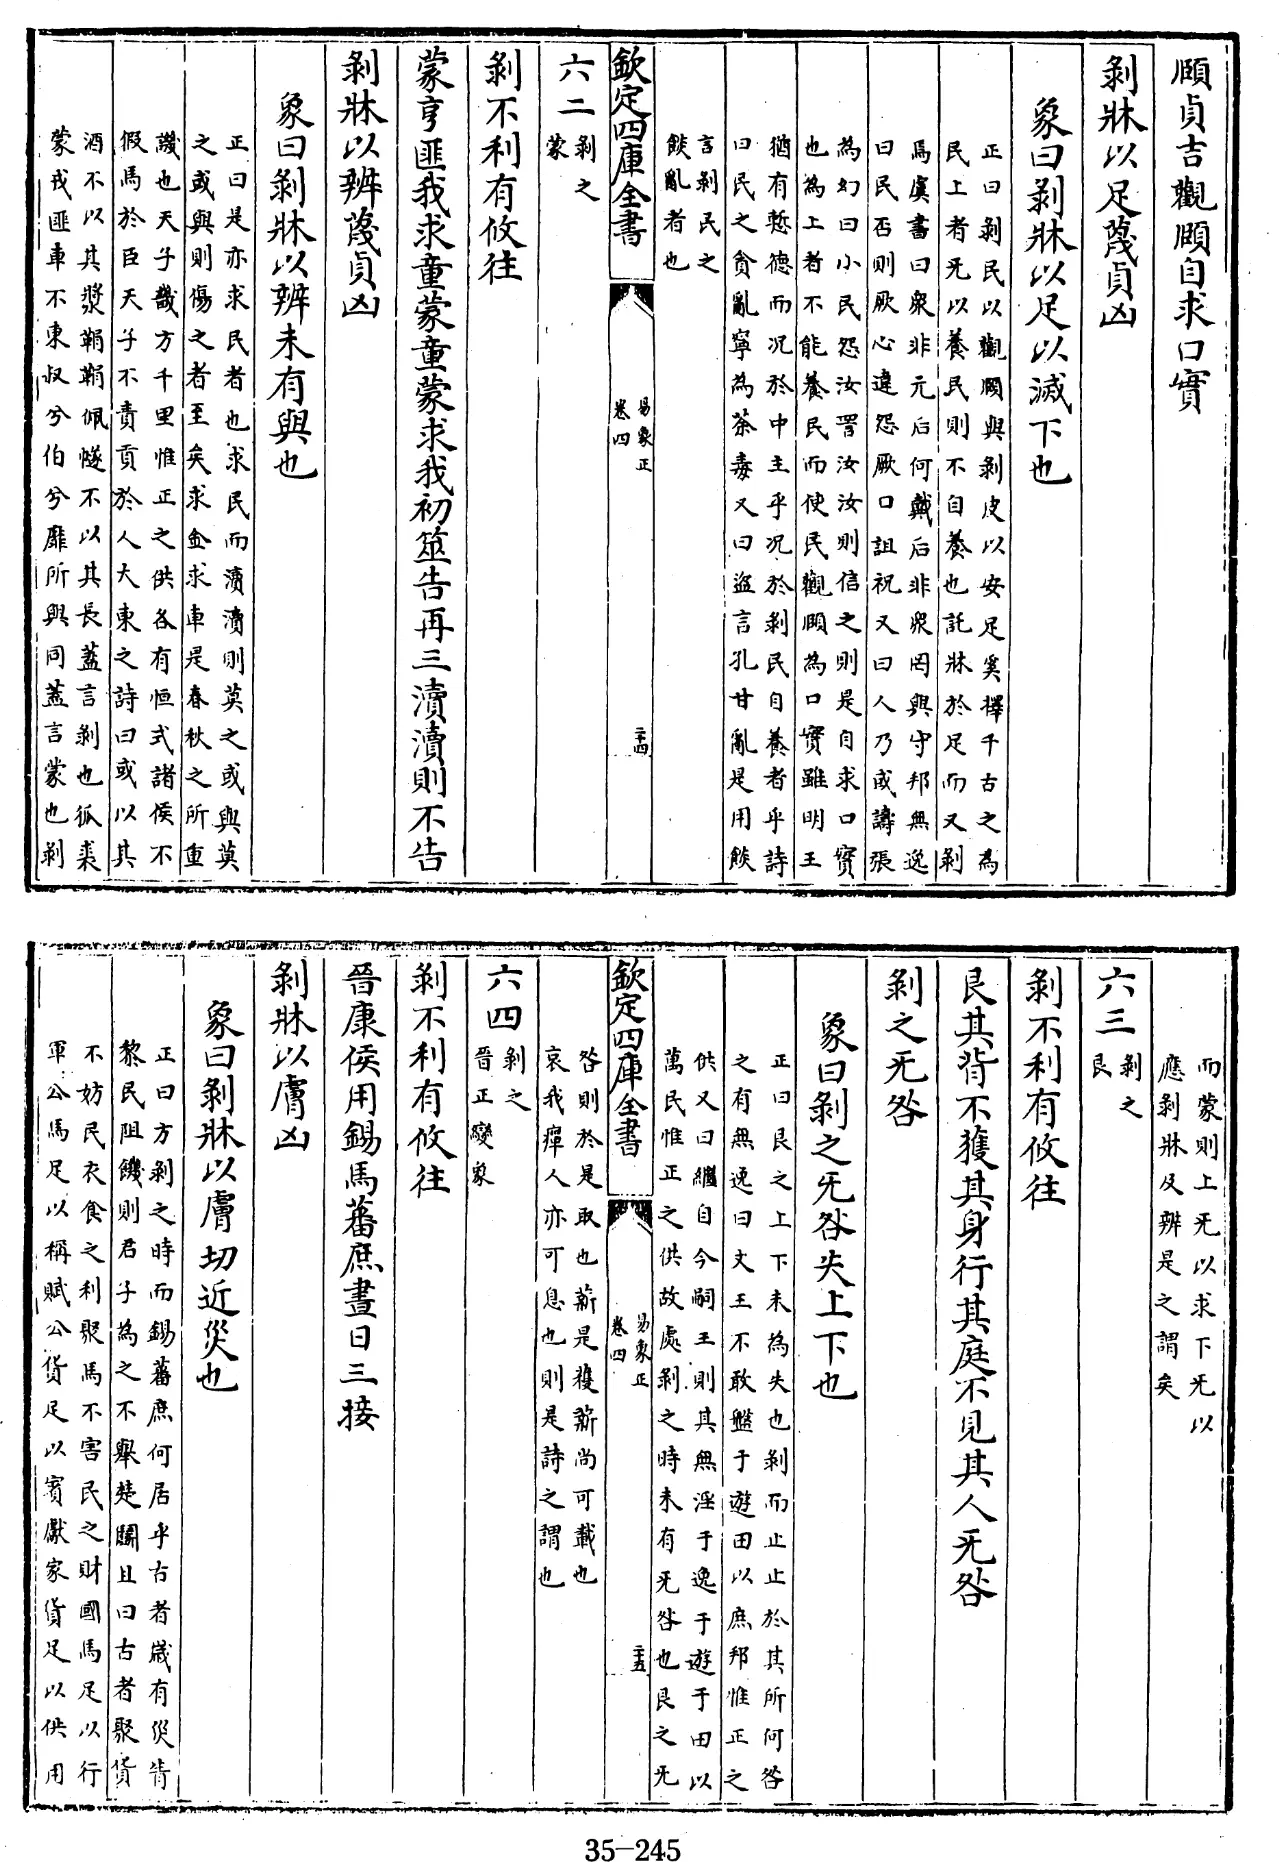 頤貞吉觀頤自求口實
剝牀以足蔑貞凶
象曰剝牀以足以滅下也
正曰剝民以觀頤與剝皮以安足奚擇千古之為
民上者无以養民則不自養也託牀於足而又剝
焉虞書曰衆非元后何戴后非衆罔與守邦無逸
曰民否則厥心違怨厥口詛祝又曰人乃或譸張
為幻曰小民怨汝詈汝汝則信之則是自求口實
也為上者不能養民而使民觀頤為口實雖明王
猶有慙德而况於中主乎况於剝民自養者乎詩
曰民之貪亂寧為荼毒又曰盜言孔甘亂是用餤
言剝民之
餤亂者也
欽定四庫全書
易象正
卷四
二十四
六二
剝之
蒙
剝不利有攸往
蒙亨匪我求童蒙童蒙求我初筮告再三瀆瀆則不告
剝牀以辨蔑貞凶
象曰剝牀以辨未有與也
正曰是亦求民者也求民而瀆瀆則莫之或與莫
之或與則傷之者至矣求金求車是春秋之所重
譏也天子畿方千里惟正之供各有恒式諸侯不
假馬於臣天子不責貢於人大東之詩曰或以其
酒不以其漿鞙鞙佩璲不以其長蓋言剝也狐裘
蒙戎匪車不東叔兮伯兮靡所與同蓋言蒙也剝
而蒙則上无以求下无以
應剝牀及辨是之謂矣
六三
剝之
艮
剝不利有攸往
艮其背不獲其身行其庭不見其人无咎
剝之无咎
象曰剝之无咎失上下也
正曰艮之上下未為失也剝而止止於其所何咎
之有無逸曰文王不敢盤于遊田以庶邦惟正之
供又曰繼自今嗣王則其無淫于逸于遊于田以
萬民惟正之供故處剝之時未有无咎也艮之无
咎則於是取也薪是穫薪尚可載也
哀我癉人亦可息也則是詩之謂也
欽定四庫全書
易象正
卷四
二十五
六四
剝之
晉正變象
剝不利有攸往
晉康侯用錫馬蕃庶晝日三接
剝牀以膚凶
象曰剝牀以膚切近災也
正曰方剝之時而錫蕃庶何居乎古者歲有災眚
黎民阻饑則君子為之不舉楚鬬且曰古者聚貨
不妨民衣食之利聚馬不害民之財國馬足以行
軍公馬足以稱賦公貨足以賓獻家貨足以供用
35-245